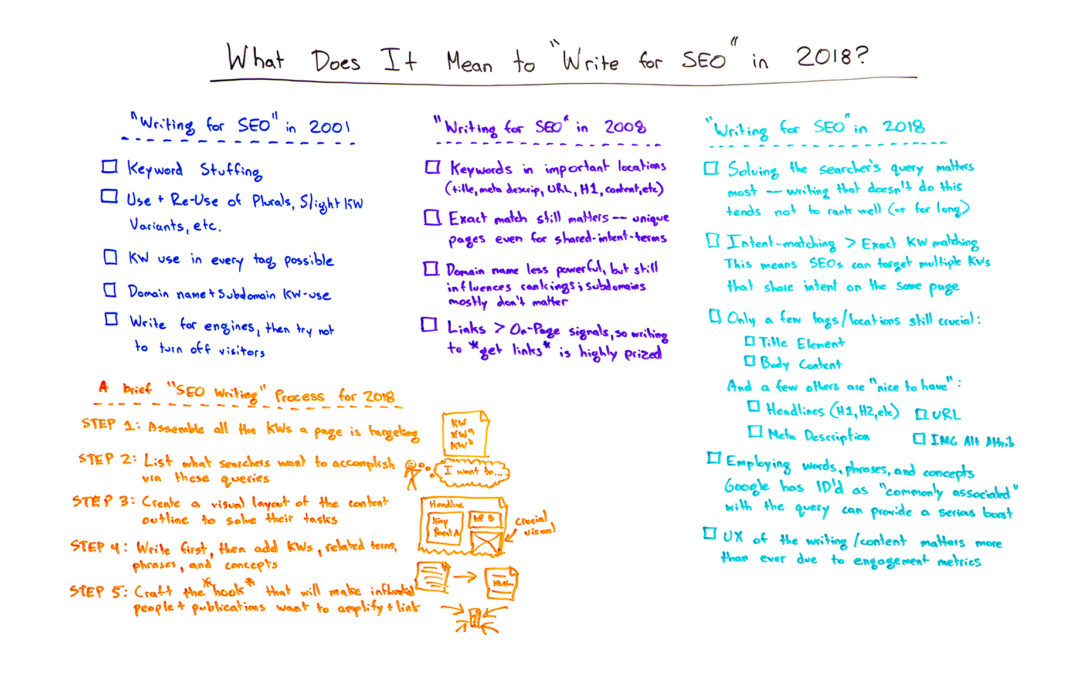 What Does It Mean to "Write for SEO" in 2018?
"Writing for SEO" in 2001
Keyword Stuffing
Use + Re-Use of Plurals, Slight KW
Variants, etc.
KW use in every tag possible
Domain name + Subdomain KW-use
Write for engines, then try not
to turn off visitors
"Writing for SEO" in 2008
Keywords in important locations
(title, meta descrip, URL, H1, content, etc)
Exact match still matters -- unique
pages even for shared-intent-terms
Domain name less powerful, but still
influences rankings; subdomains
mostly don't matter
Links > On-Page signals, so writing
to *get links* is highly prized
"Writing for SEO" in 2018
Solving the searcher's query matters
most — writing that doesn't do this
tends not to rank well (or for long)
Intent-matching > Exact KW matching
This means SEOs can target multiple KWs
that share intent on the same page
Only a few tags/locations still crucial:
Title Element
Body Content
And a few others are "nice to have":
Headlines (H1, H2, etc) URL
Meta Description IMG Alt Attrib
Employing words, phrases, and concepts
Google has ID'd as "commonly associated"
with the query can provide a serious boost
UX of the writing/content matters more
than ever due to engagement metrics
A brief "SEO Writing" Process for 2018
STEP 1: Assemble all the KWs a page is targeting
KW
KWa
KWb
STEP 2: List what searchers want to accomplish
via these queries
I want to...
STEP 3: Create a visual layout of the content
outline to solve their tasks
Headline
Key
Crucial
visual
STEP 4: Write first, then add KWs, related terms,
phrases, and concepts
STEP 5: Craft the *hook* that will make influential
people + publications want to amplify + link